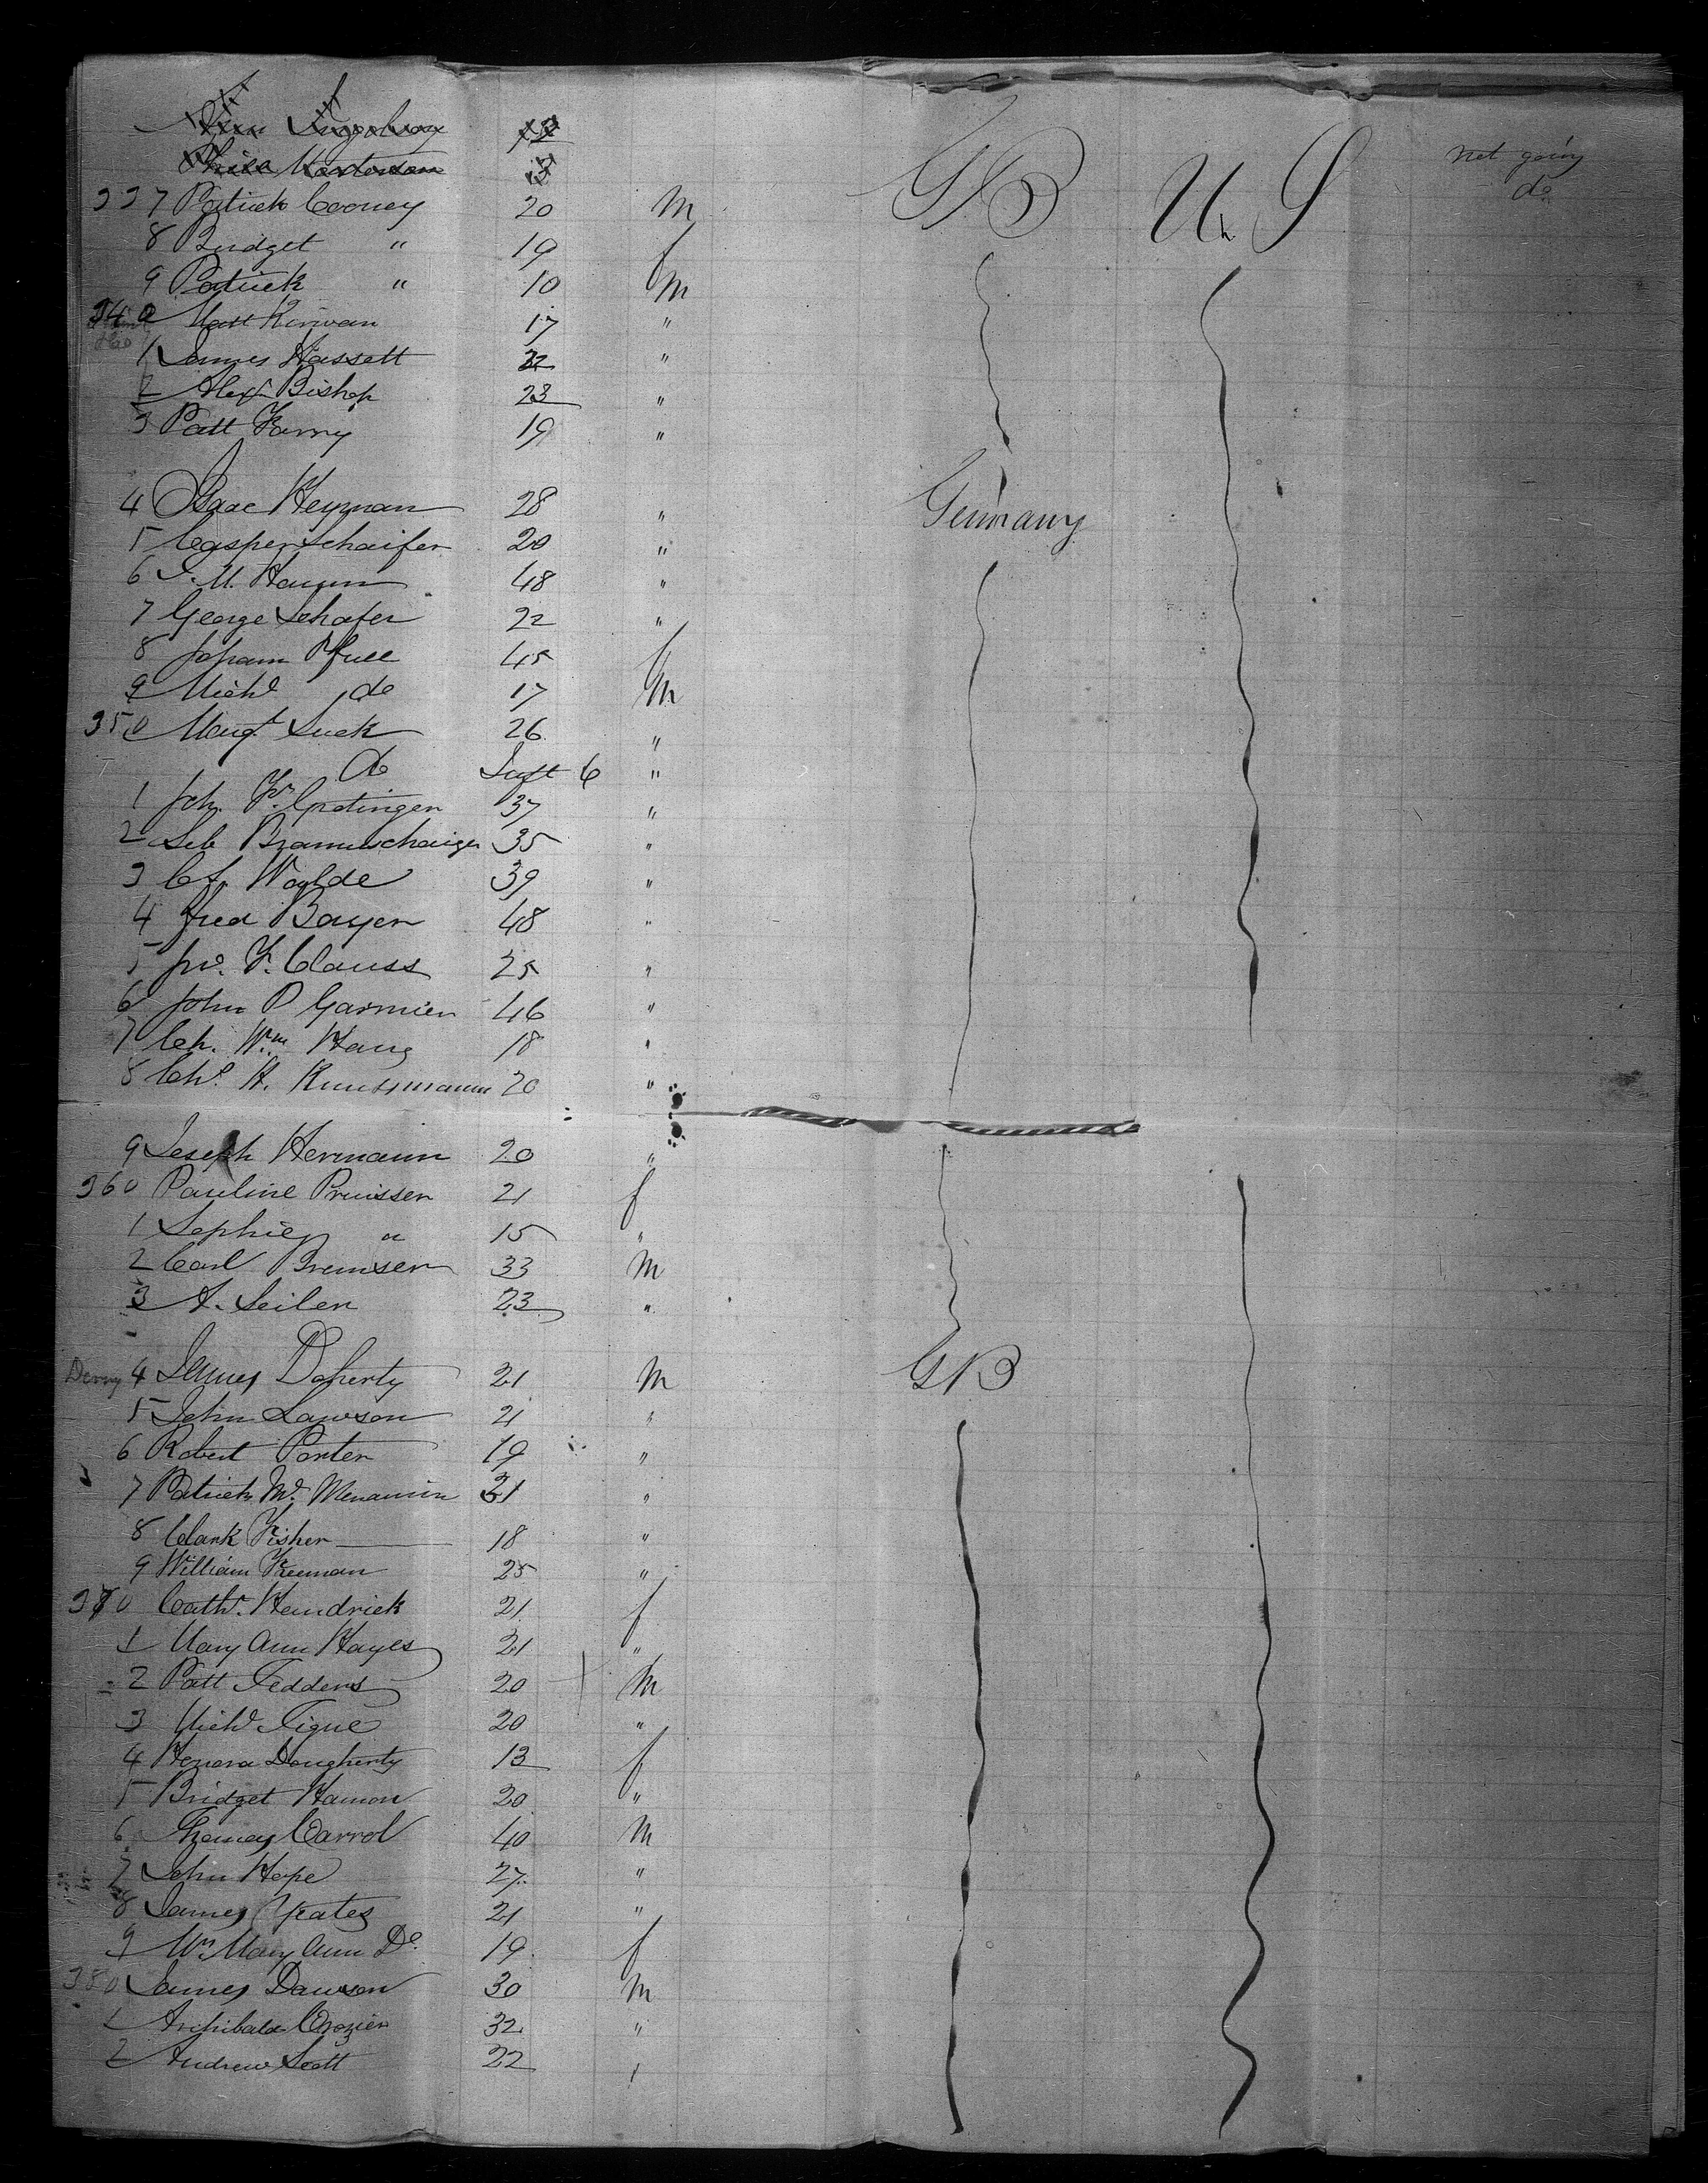 not going
do
337 Patrick Cooney 20 M GB U S
8 Bridget " 19 f
9 Patrick " 10 M
340 Matt Kirwan 17 "
1 James Hassett 22 "
2 Alex Bishop 23 "
3 Patt Farry 19 "
4 Isaac Heyman 28 " Germany
5 Casper Schaifer 20 "
6 48 "
7 George Schafer 22 "
8 Johann Pfull 45 f
9 Michl do 17 M
350 Margt Suck 26 "
do Inft 6 "
1 Joh. Fr. 37 "
2 Seb 35 "
3 39 "
4 Fred Bayer 48 "
5 Jno. F. Clauss 25 "
6 John P Garmier 46 "
7 Ch. Wm Haug 18 "
8 Chs. H. 20 "
9 Joseph Hermann 20 "
360 Pauline Pruisser 21 f
1 Sophie " 15 "
2 Carl Bremser 33 M
3 A. Seiler 23 "
Derry 4 James Doherty 21 M GB
5 John Lawson 21 "
6 Robert Porter 19 "
7 Patrick Mc Menamin 21 "
8 Clark Fisher 18 "
9 William Freeman 25 "
370 Cathe. Hendrick 21 f
1 Mary Ann Hayes 21 "
2 Patt Fedders 20 M
3 Michl Tigue 20 "
4 Honora Dougherty 13 f
5 Bridget Hamon 20 "
6 Thomas Carrol 40 M
7 John Hope 27 "
8 James Yeates 21 "
9 Mrs Mary Ann Do. 19 f
380 James Dawson 30 M
1 Archibald Crozier 32 "
2 Andrew Scott 22 "